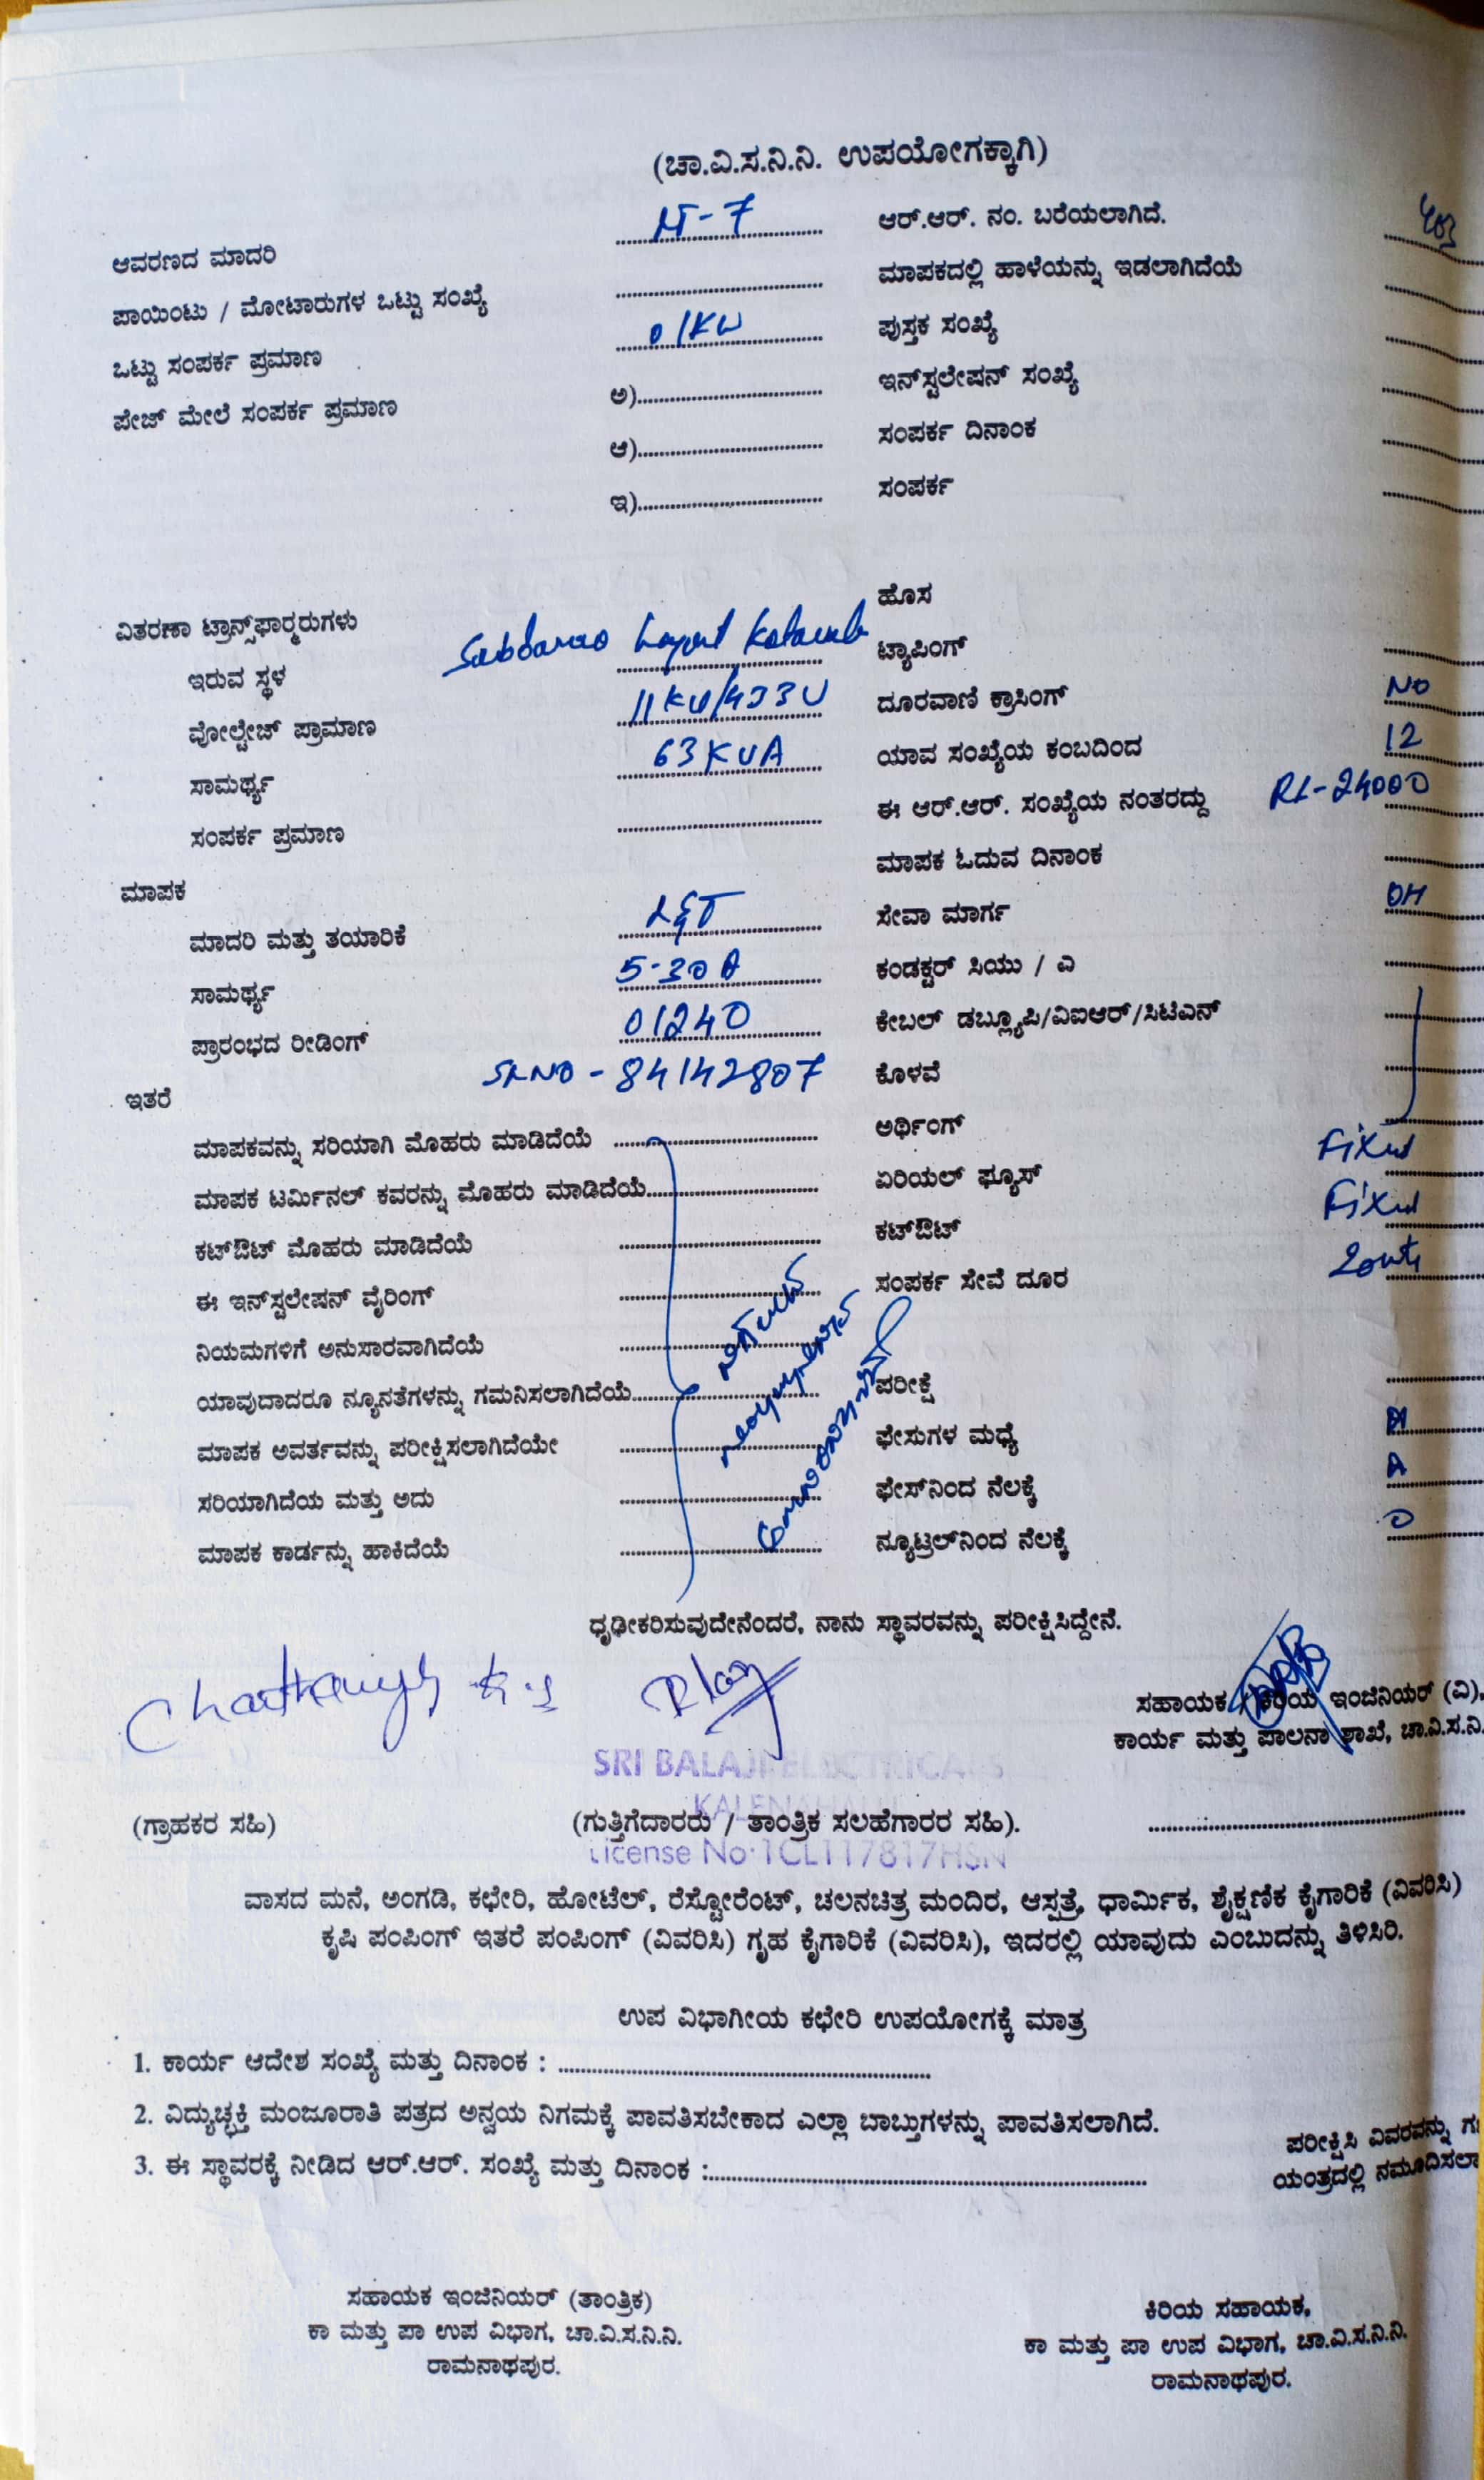 (ಚಾ.ವಿ.ಸ.ನಿ.ನಿ. ಉಪಯೋಗಕ್ಕಾಗಿ)
ಆವರಣದ ಮಾದರಿ
ಆರ್.ಆರ್. ನಂ. ಬರೆಯಲಾಗಿದೆ.
ಪಾಯಿಂಟು / ಮೋಟಾರುಗಳ ಒಟ್ಟು ಸಂಖ್ಯೆ ಮಾಪಕದಲ್ಲಿ ಹಾಳೆಯನ್ನು ಇಡಲಾಗಿದೆಯೆ
ಒಟ್ಟು ಸಂಪರ್ಕ ಪ್ರಮಾಣ 01KW ಪುಸ್ತಕ ಸಂಖ್ಯೆ
ಪೇಜ್ ಮೇಲೆ ಸಂಪರ್ಕ ಪ್ರಮಾಣ ಅ) ಇನ್‌ಸ್ಟಲೇಷನ್ ಸಂಖ್ಯೆ
ಆ) ಸಂಪರ್ಕ ದಿನಾಂಕ
ಇ) ಸಂಪರ್ಕ
ವಿತರಣಾ ಟ್ರಾನ್ಸ್‌ಫಾರ್‍ಮರುಗಳು ಹೊಸ
ಇರುವ ಸ್ಥಳ ಟ್ಯಾಪಿಂಗ್
ವೋಲ್ಟೇಜ್ ಪ್ರಾಮಾಣ 11KV/433V ದೂರವಾಣಿ ಕ್ರಾಸಿಂಗ್ NO
ಸಾಮರ್ಥ್ಯ 63KVA ಯಾವ ಸಂಖ್ಯೆಯ ಕಂಬದಿಂದ 12
ಸಂಪರ್ಕ ಪ್ರಮಾಣ ಈ ಆರ್.ಆರ್. ಸಂಖ್ಯೆಯ ನಂತರದ್ದು RL-24000
ಮಾಪಕ ಮಾಪಕ ಓದುವ ದಿನಾಂಕ
ಮಾದರಿ ಮತ್ತು ತಯಾರಿಕೆ L&T ಸೇವಾ ಮಾರ್ಗ OH
ಸಾಮರ್ಥ್ಯ 5-30A ಕಂಡಕ್ಟರ್ ಸಿಯು / ಎ
ಪ್ರಾರಂಭದ ರೀಡಿಂಗ್ 01240 ಕೇಬಲ್ ಡಬ್ಲ್ಯೂಪಿ/ವಿಐಆರ್/ಸಿಟಿಎನ್
ಇತರೆ SLNO - 84142807 ಕೊಳವೆ
ಮಾಪಕವನ್ನು ಸರಿಯಾಗಿ ಮೊಹರು ಮಾಡಿದೆಯೆ ಅರ್ಥಿಂಗ್
ಮಾಪಕ ಟರ್ಮಿನಲ್ ಕವರನ್ನು ಮೊಹರು ಮಾಡಿದೆಯೆ ಏರಿಯಲ್ ಫ್ಯೂಸ್ Fixed
ಕಟ್‌ಔಟ್ ಮೊಹರು ಮಾಡಿದೆಯೆ ಕಟ್‌ಔಟ್ Fixed
ಈ ಇನ್‌ಸ್ಟಲೇಷನ್ ವೈರಿಂಗ್ ಸಂಪರ್ಕ ಸೇವೆ ದೂರ
ನಿಯಮಗಳಿಗೆ ಅನುಸಾರವಾಗಿದೆಯೆ
ಯಾವುದಾದರೂ ನ್ಯೂನತೆಗಳನ್ನು ಗಮನಿಸಲಾಗಿದೆಯೆ ಪರೀಕ್ಷೆ
ಮಾಪಕ ಅವರ್ತವನ್ನು ಪರೀಕ್ಷಿಸಲಾಗಿದೆಯೇ ಫೇಸುಗಳ ಮಧ್ಯೆ
ಸರಿಯಾಗಿದೆಯ ಮತ್ತು ಅದು ಫೇಸ್‌ನಿಂದ ನೆಲಕ್ಕೆ A
ಮಾಪಕ ಕಾರ್ಡನ್ನು ಹಾಕಿದೆಯೆ ನ್ಯೂಟ್ರಲ್‌ನಿಂದ ನೆಲಕ್ಕೆ
ಧೃಢೀಕರಿಸುವುದೇನೆಂದರೆ, ನಾನು ಸ್ಥಾವರವನ್ನು ಪರೀಕ್ಷಿಸಿದ್ದೇನೆ.
ಸಹಾಯಕ / ಕಿರಿಯ ಇಂಜಿನಿಯರ್ (ವಿ),
ಕಾರ್ಯ ಮತ್ತು ಪಾಲನಾ ಶಾಖೆ, ಚಾ.ವಿ.ಸ.ನಿ.
SRI BALAJI ELECTRICALS
KALENAHALLI
(ಗ್ರಾಹಕರ ಸಹಿ) (ಗುತ್ತಿಗೆದಾರರು / ತಾಂತ್ರಿಕ ಸಲಹೆಗಾರರ ಸಹಿ).
License No:1CL117817HSN
ವಾಸದ ಮನೆ, ಅಂಗಡಿ, ಕಛೇರಿ, ಹೋಟೆಲ್, ರೆಸ್ಟೋರೆಂಟ್, ಚಲನಚಿತ್ರ ಮಂದಿರ, ಆಸ್ಪತ್ರೆ, ಧಾರ್ಮಿಕ, ಶೈಕ್ಷಣಿಕ ಕೈಗಾರಿಕೆ (ವಿವರಿಸಿ)
ಕೃಷಿ ಪಂಪಿಂಗ್ ಇತರೆ ಪಂಪಿಂಗ್ (ವಿವರಿಸಿ) ಗೃಹ ಕೈಗಾರಿಕೆ (ವಿವರಿಸಿ), ಇದರಲ್ಲಿ ಯಾವುದು ಎಂಬುದನ್ನು ತಿಳಿಸಿರಿ.
ಉಪ ವಿಭಾಗೀಯ ಕಛೇರಿ ಉಪಯೋಗಕ್ಕೆ ಮಾತ್ರ
1. ಕಾರ್ಯ ಆದೇಶ ಸಂಖ್ಯೆ ಮತ್ತು ದಿನಾಂಕ :
2. ವಿದ್ಯುಚ್ಛಕ್ತಿ ಮಂಜೂರಾತಿ ಪತ್ರದ ಅನ್ವಯ ನಿಗಮಕ್ಕೆ ಪಾವತಿಸಬೇಕಾದ ಎಲ್ಲಾ ಬಾಬ್ತುಗಳನ್ನು ಪಾವತಿಸಲಾಗಿದೆ.
3. ಈ ಸ್ಥಾವರಕ್ಕೆ ನೀಡಿದ ಆರ್.ಆರ್. ಸಂಖ್ಯೆ ಮತ್ತು ದಿನಾಂಕ :
ಪರೀಕ್ಷಿಸಿ ವಿವರವನ್ನು
ಯಂತ್ರದಲ್ಲಿ ನಮೂದಿಸಲಾ
ಸಹಾಯಕ ಇಂಜಿನಿಯರ್ (ತಾಂತ್ರಿಕ)
ಕಾ ಮತ್ತು ಪಾ ಉಪ ವಿಭಾಗ, ಚಾ.ವಿ.ಸ.ನಿ.ನಿ.
ರಾಮನಾಥಪುರ.
ಕಿರಿಯ ಸಹಾಯಕ,
ಕಾ ಮತ್ತು ಪಾ ಉಪ ವಿಭಾಗ, ಚಾ.ವಿ.ಸ.ನಿ.ನಿ.
ರಾಮನಾಥಪುರ.